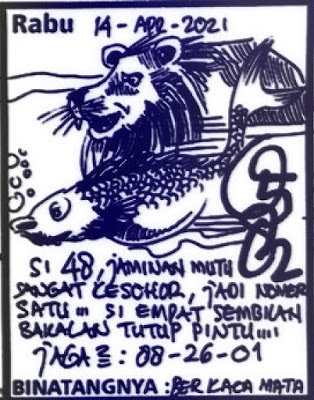 Rabu 14 - APR - 2021
SI 48, JAMINAN MUTU
SANGAT KESOHOR, JADI NOMER
SATU !!! SI EMPAT SEMBILAN
BAKALAN TUTUP PINTU !!!!
JAGA2 : 88-26-01
BINATANGNYA : BER KACA MATA